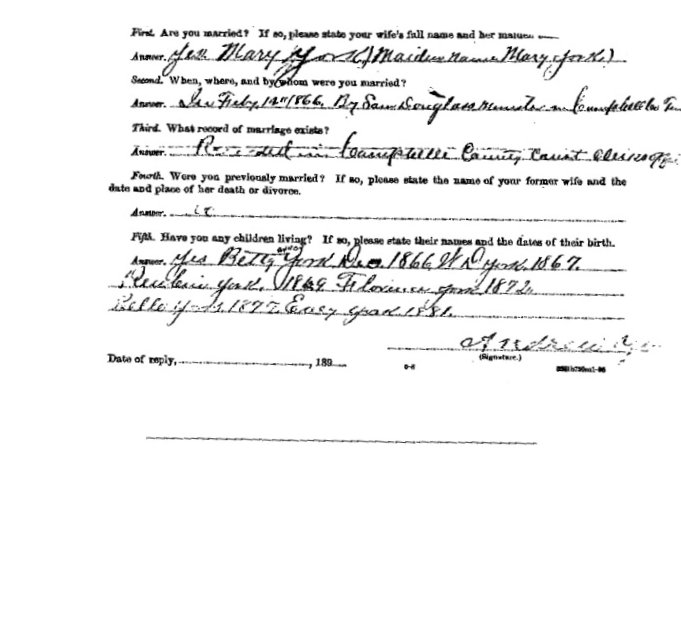 First. Are you married? If so, please state your wife's full name and her
Answer. Yes Mary York (Maiden name Mary York)
Second. When, where, and by whom were you married?
Answer. In Feby, 12" 1866, By Sam Douglass minister in Campbell Co Ten
Third. What record of marriage exists?
Answer. Record in Campbell County Court Clerks
Fourth. Were you previously married? If so, please state the name of your former wife and the
date and place of her death or divorce.
Answer.
Fifth. Have you any children living? If so, please state their names and the dates of their birth.
Answer. Yes Betty York Dec 1866 W D York. 1867.
York. 1869 Florence York 1872.
Belle York 1877. York 1881.
Andrew
Date of reply, , 189
(Signature.)